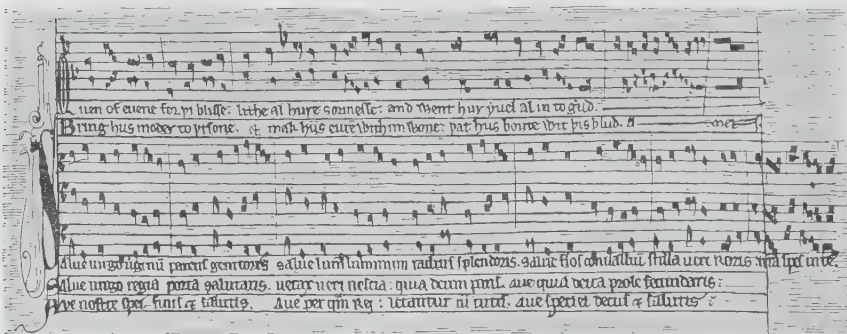 Quen of euene for þi blisse: lithe al hure sorinesse: and went hur yuel al in to gud.
Bring hus moder to þi sone. & mak hus eure with im wone: þat hus boute wit his blud. A men
Salue uirgo uirginū parens genitoris salue luminum radius splendoris. salue flos conualliū stilla ueri roris spes in te.
Salue uirgo regia porta salutaris. ueri nescia: quia deum paris. aue quia prole fecundaris:
Aue nostre spei finis & salutis. Aue per Reg : aue speciei decus & salutis :